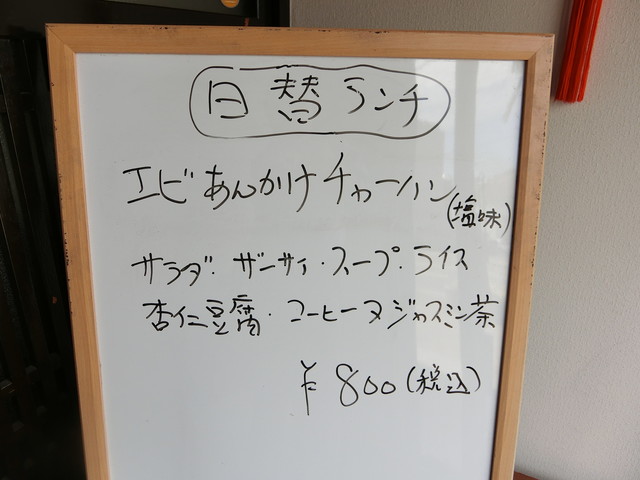 日替ランチ
エビあんかけチャーハン(塩味)
サラダ・ザーサイ・スープ・ライス
杏仁豆腐・コーヒーヌジャスミン茶
¥800(税込)